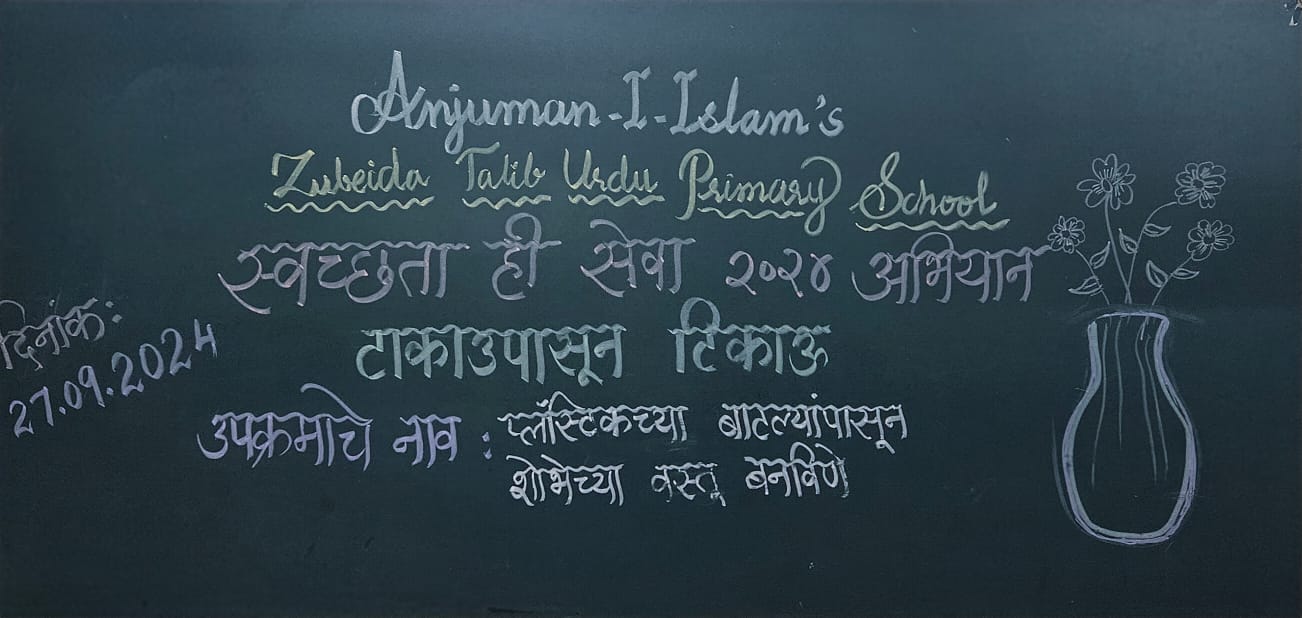 Anjuman-I-Islam's
Zubeida Talib Urdu Primary School
स्वच्छता ही सेवा २०२४ अभियान
दिनांक:
27.09.2024
टाकाउपासून टिकाऊ
उपक्रमाचे नाव : प्लॅस्टिकच्या बाटल्यांपासून
शोभेच्या वस्तू बनविणे